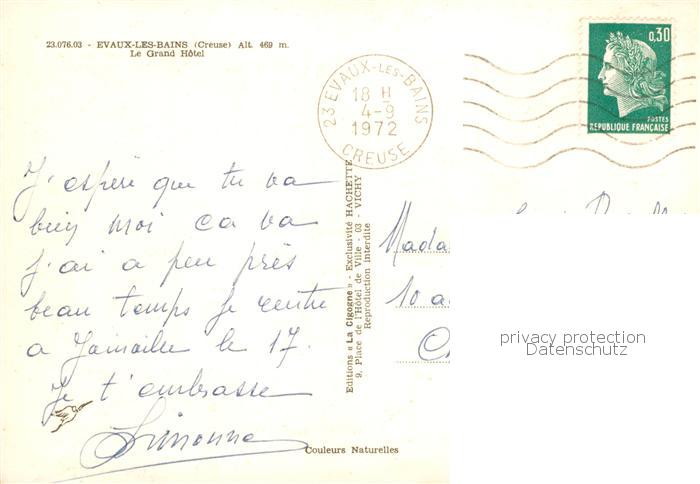 23.076.03 - EVAUX-LES-BAINS (Creuse) Alt. 469 m.
Le Grand Hôtel
23 EVAUX-LES-BAINS
18 H
4-9
1972
CREUSE
0,30
POSTES
REPUBLIQUE FRANÇAISE
J'espère que tu va
bien moi ca va
j'ai a peu près
beau temps je rentre
a le 17.
Je t'embrasse
Simonne
Editions « La Cigogne » - Exclusivité HACHETTE
9, Place de l'Hôtel de Ville - 03 - VICHY
Reproduction interdite
Mada
10 a
privacy protection
Datenschutz
Couleurs Naturelles